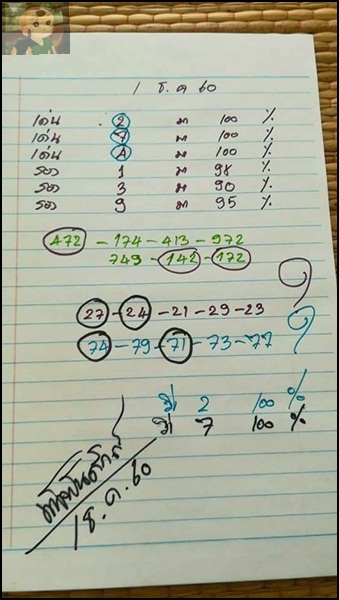 1 ธ.ค 60
เด่น 2 มา 100 %
เด่น 7 มา 100 %
เด่น 4 มา 100 %
รอง 1 มา 98 %
รอง 3 มา 90 %
รอง 9 มา 95 %
472 - 174 - 413 - 972
749 - 142 - 172
27 - 24 - 21 - 29 - 23
74 - 79 - 71 - 73 - 77
2 100 %
7 100 %
1 ธ.ค. 60